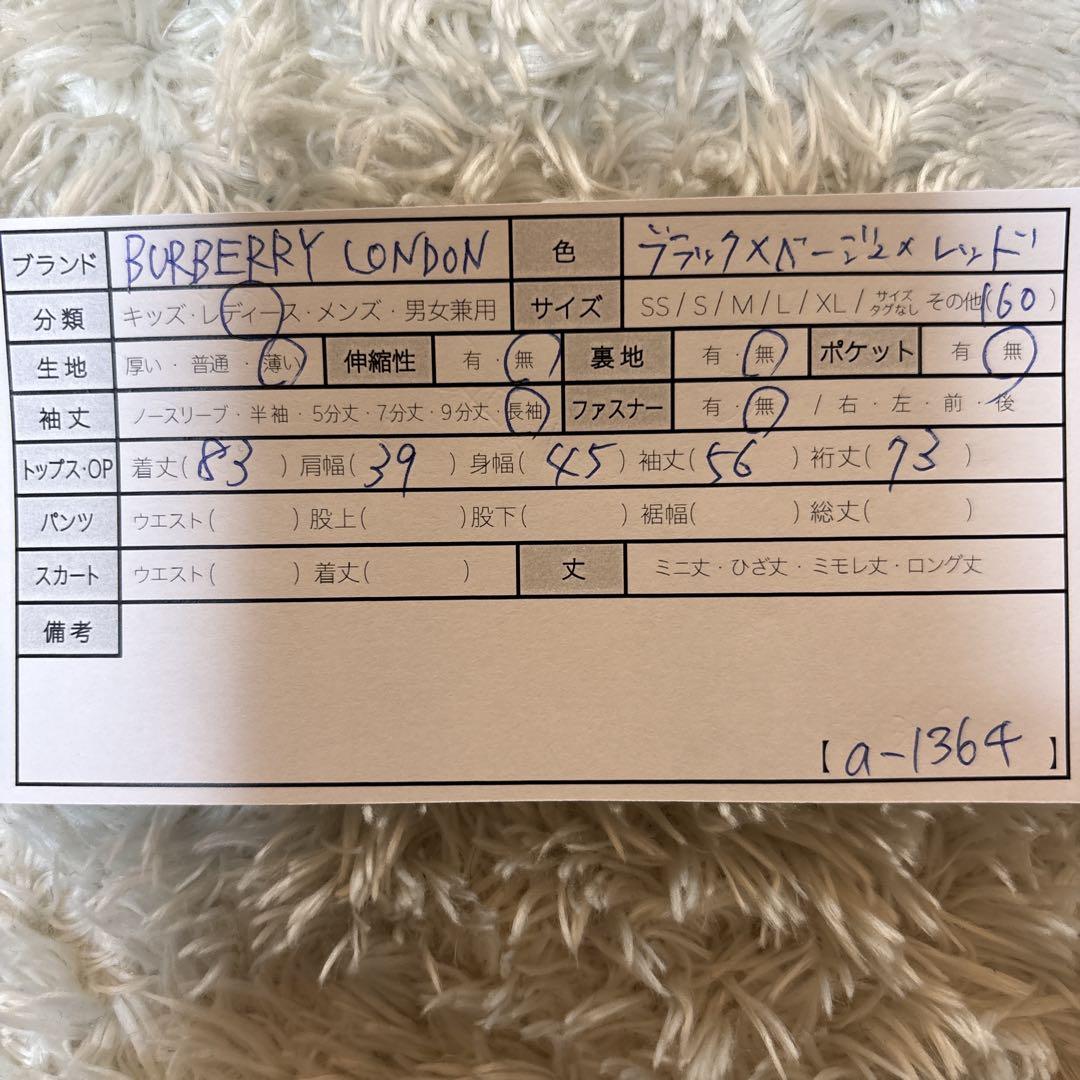 ブランド BURBERRY LONDON 色 ブラック×ベージュ×レッド
分類 キッズ・レディース・メンズ・男女兼用 サイズ SS/S/M/L/XL/サイズタグなし その他(160)
生地 厚い・普通・薄い 伸縮性 有・無 裏地 有・無 ポケット 有・無
袖丈 ノースリーブ・半袖・5分丈・7分丈・9分丈・長袖 ファスナー 有・無 / 右・左・前・後
トップス・OP 着丈(83) 肩幅(39) 身幅(45) 袖丈(56) 裄丈(73)
パンツ ウエスト( ) 股上( ) 股下( ) 裾幅( ) 総丈( )
スカート ウエスト( ) 着丈( ) 丈 ミニ丈・ひざ丈・ミモレ丈・ロング丈
備考
【a-1364】